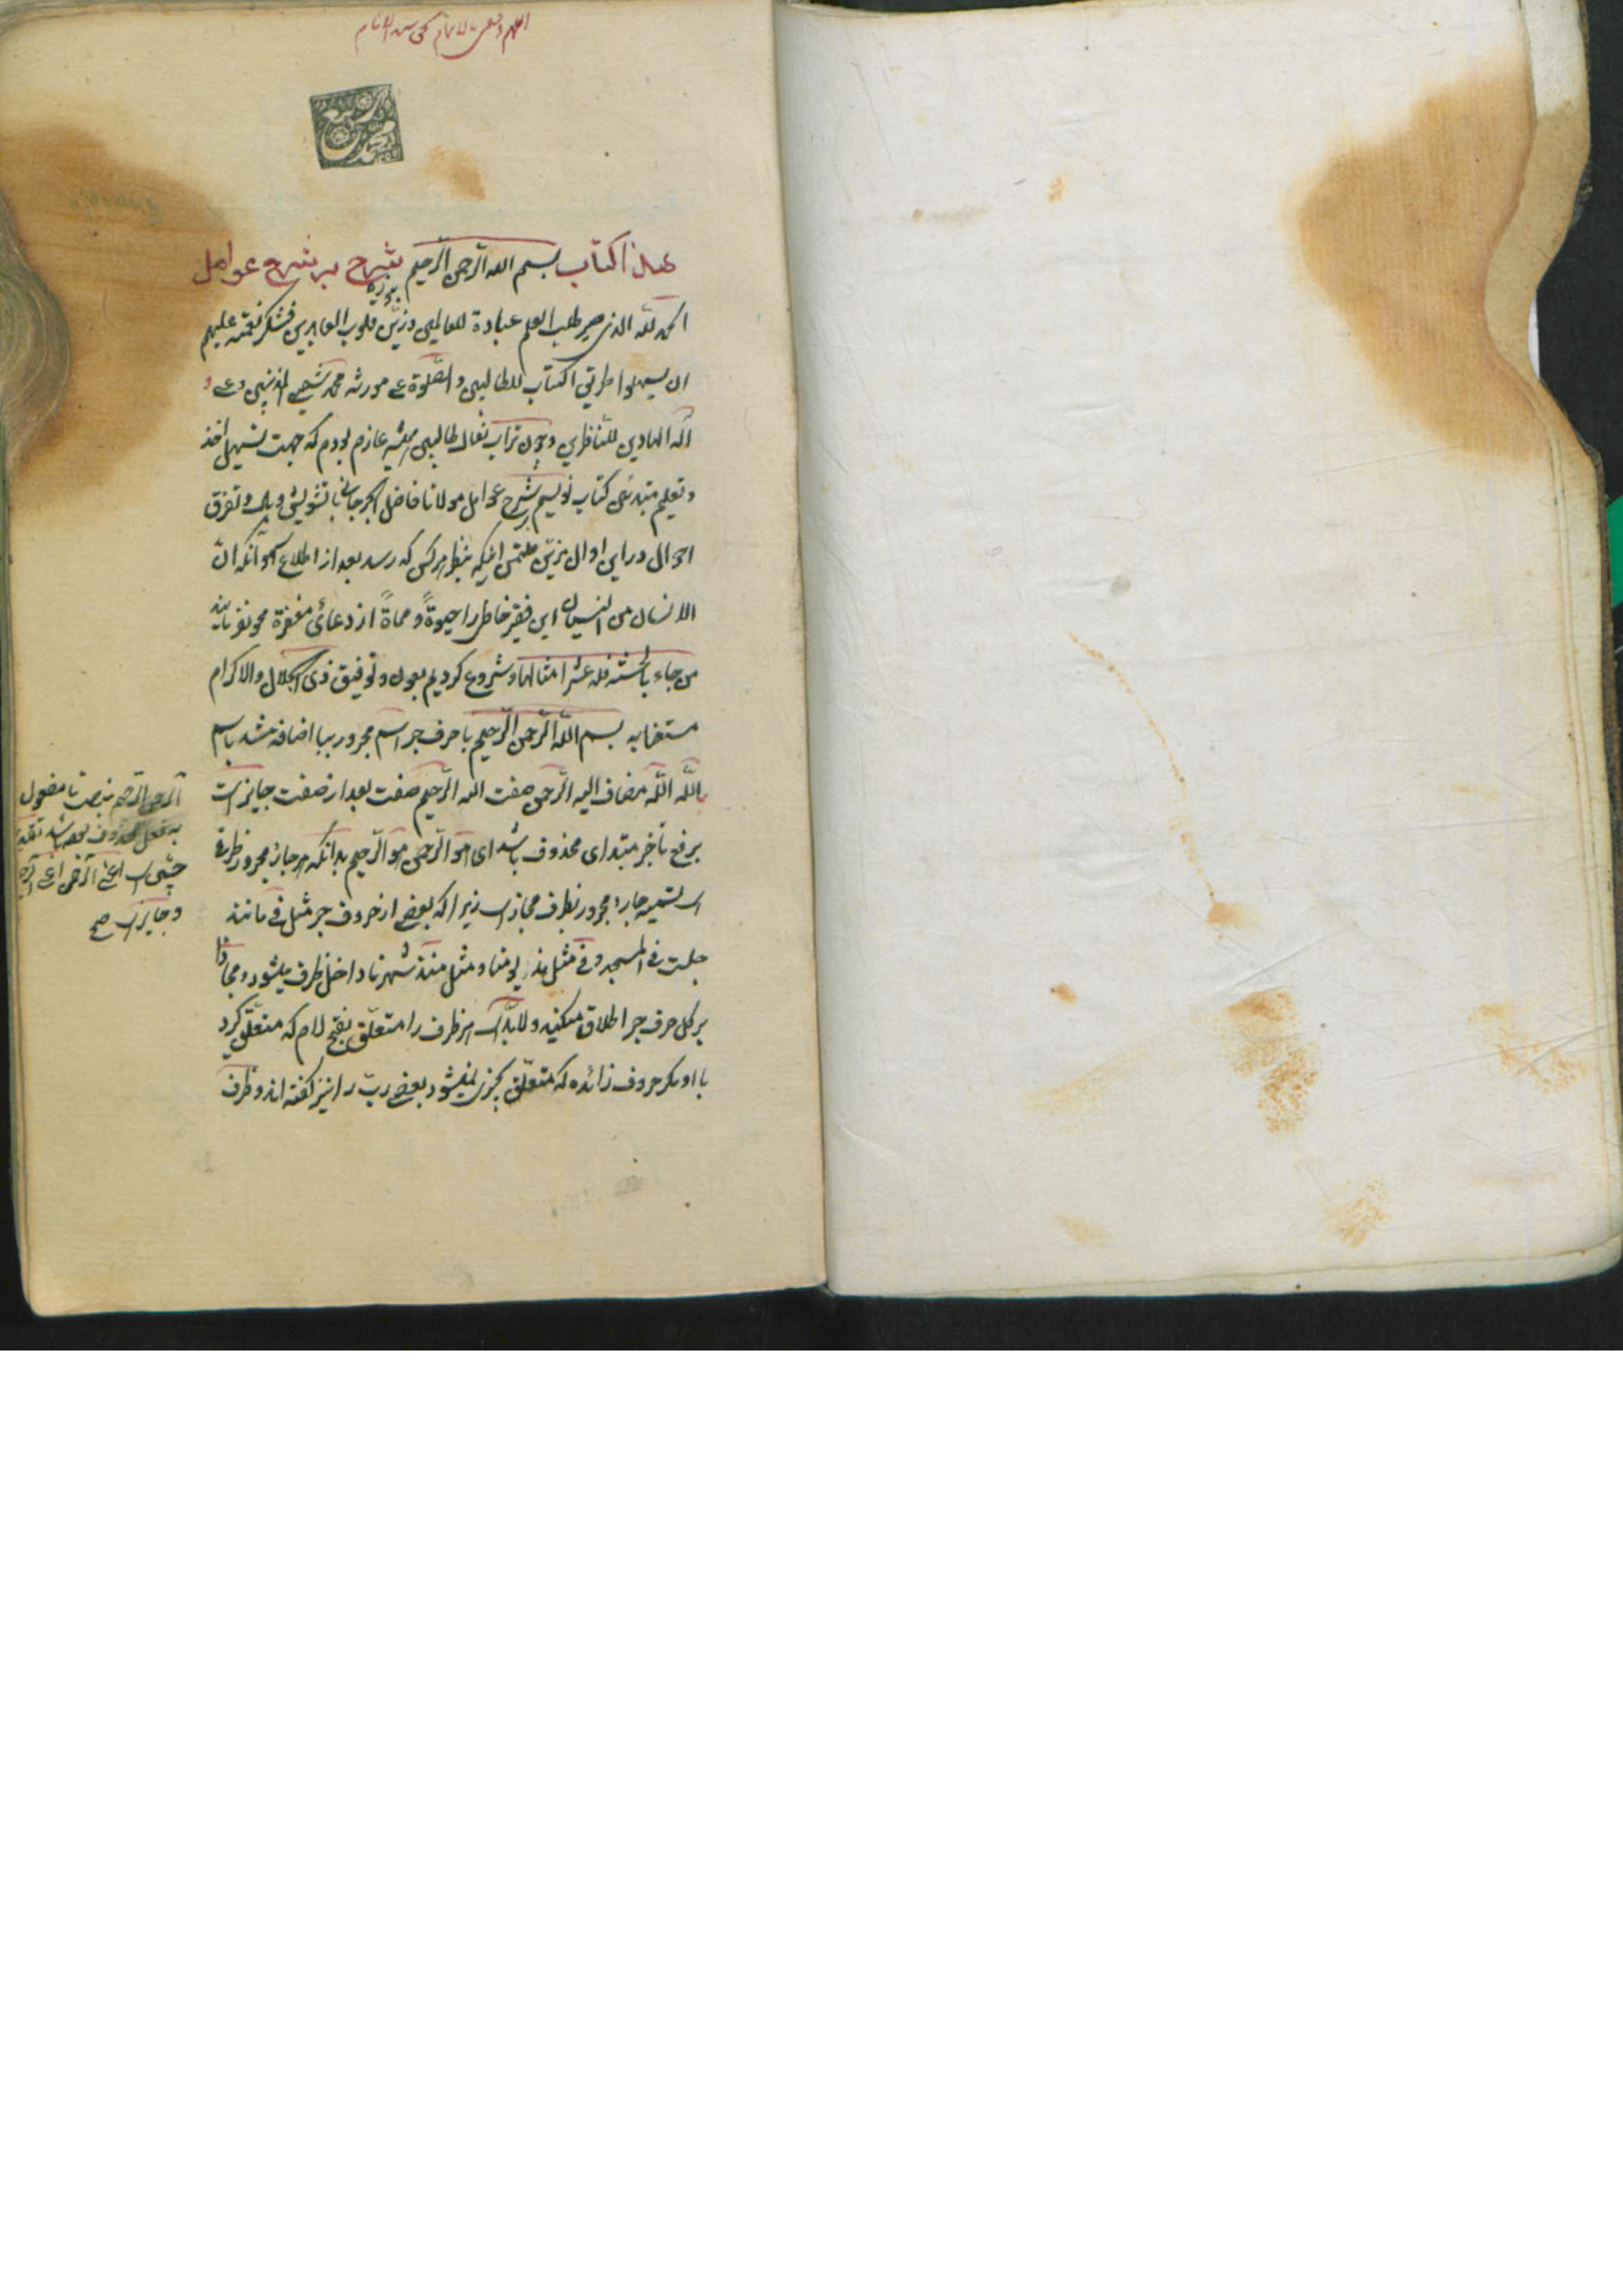 هذا کتاب بسم الله الرّحمن الرّحیم شرح بر شرح عوامل
الحمد لله الذی صیر طلب العلم عبادة للعالمین وزیّن قلوب العابدین فشکر نعمته علیهم
ان یسهلوا طریق اکتساب للطالبین والصّلوة علی محمد شفیع المذنبین وعلی
آله الهادین للنّاظرین و چون تراب نعال طالبین عازم بودم که جهت تسهیل اخذ
و تعلیم مبتدئی کتاب نویسم بر شرح عوامل مولانا فاضل الجرجانی با تشویش و تفرق
احوال در این اوان ملتمس اینکه بنظر هرکس که رسد بعد از اطلاع آنکه انّ
الانسان من النسیان این فقیر خاطر را حیوةً و مماةً از دعائی مغفرة محو نفرمایند
من جاء بالحسنة فله عشر امثالها و شروع کردیم بعون و توفیق ذی الجلال والاکرام
مستعانه بسم اللّه الرّحمن الرّحیم با حرف جر اسم مجرور ببا اضافه شد باسم
باللّه اللّه مضاف الیه الرّحمن صفت الله الرّحیم صفت بعد از صفت جایز است
برفع تا خبر مبتدای محذوف باشد ای هو الرّحمن هو الرّحیم بدانکه هر جار مجرور ظرف
است تسمیه جار مجرور بظرف مجاز است زیرا که بعضی از حروف جر مثل فی مانند
جلست فی المسجد و فی مثل مذ یومنا و مثل منذ شهرنا داخل ظرف میشود و مجازا
بر کل حرف جر اطلاق میکنند و لابدّ است هر ظرف را متعلّق بفتح لام که متعلّق گردد
با او مگر حروف زائده که متعلّق بچیزی نمیشود بعضی ربّ را نیز گفته اند و ظرف
الرحمن الرّحیم بنصب تا مفعول
به فعل محذوف بوده باشد تقدیر
چنین است اعنی الرّحمن اعنی الرّحیم
و جایز است صح